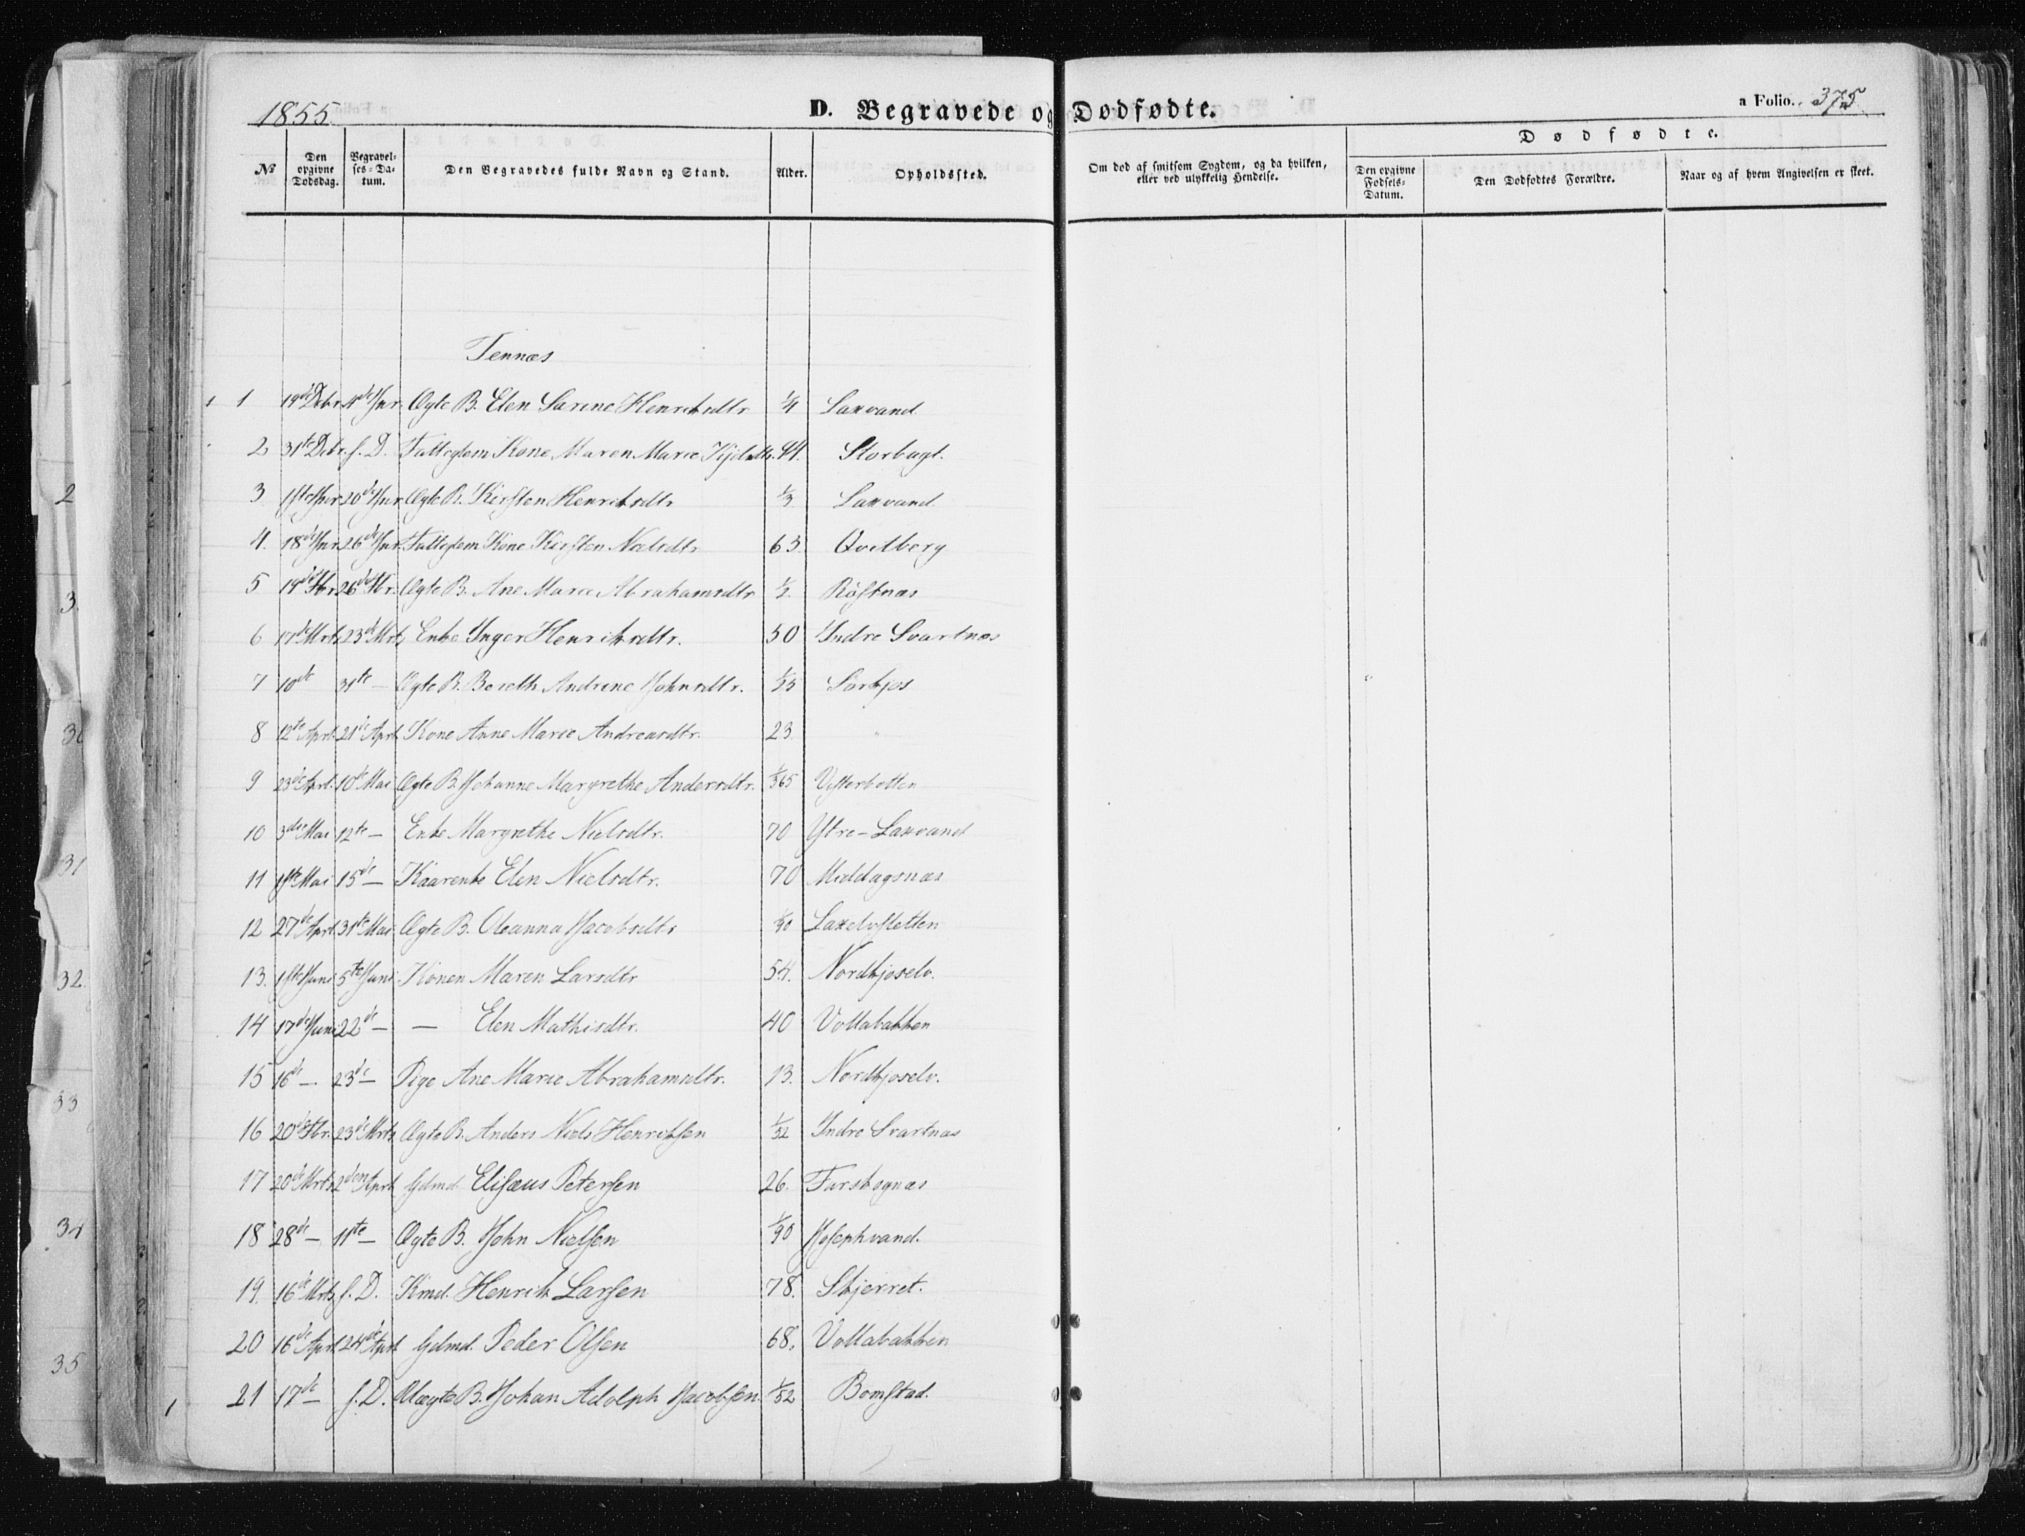 1855.
D. Begravede og Dødfødte.
a Folio. 375
Dødfødte.
№ Den opgivne Dødsdag. Begravelses-Datum. Den Begravedes fulde Navn og Stand. Alder. Opholdssted. Om død af smitsom Sygdom, og da hvilken, eller ved ulykkelig Hendelse. Den opgivne Fødsels-Datum. Den Dødfødtes Forældre. Naar og af hvem Angivelsen er skeet.
Tennæs
1 19de Debr. 4de Jnr. Ægte B. Elen Sarine Henriksdtr. 1/4 Laxvand
2 31te Debr. s. D. Fattiglem Kone Maren Marie 44. Storbugt.
3 1ste Jnr. 20de Jnr. Ægte B. Kirsten Henriksdtr. 1/3 Laxvand
4. 18de Jnr. 26de Jnr. Fattiglem Kone Kirsten Nielsdtr 63. Qvitberg
5 19de Fbr. 26de Fbr. Ægte B. Ane Marie Abrahamsdtr 1/2. Røstnæs
6 17de Mrts 23de Mrts Enke Inger Henriksdtr. 50 Indre Svartnæs
7 10de 31te — Ægte B. Bereth Andrine Johnsdtr. Sørkjos
8 12te Aprl. 21de Aprl. Kone Anne Marie Andreasdtr. 23 "
9 23de Aprl. 10de Mai Ægte B. Johanne Margrethe Andersdtr. 1/365 Vesterbotten
10 3die Mai 12te — Enke Margrethe Nielsdtr. 70 Ytre-Laxvand
11 1ste Mai 15de — Kaarenke Elen Nielsdtr. 70 Middagsnæs
12 27de Aprl. 31te Mai Ægte B. Oleanna Jacobsdtr Laxelvsletten
13. 1ste Juni 5te Juni Konen Maren Larsdtr 54. Nordkjoselv.
14 17de Juni 22de — — Elen Mathisdtr. 40 Vollabakken
15 16de — 23de — Pige Ane Marie Abrahamsdtr. 13. Nordkjoselv.
16 20de Fbr. 23de Mrts Ægte B. Anders Niels Henriksen 1/52 Indre Svartnæs
17 20de Mrts 2den Aprl. Gdmd. Elisæus Petersen 26. Forsbognæs
18 28de — 11te — Ægte B. John Nielsen 1/90 Josephvand.
19. 16de Mrts s. D. Kmd. Henrik Larsen 78. Skjerret.
20 16de Aprl. 24de Aprl Gdmd. Peder Olsen 68. Vollabakken
21 17de — s. D. Uægte B. Johan Adolph Jacobsen. 1/52 Bomstad.